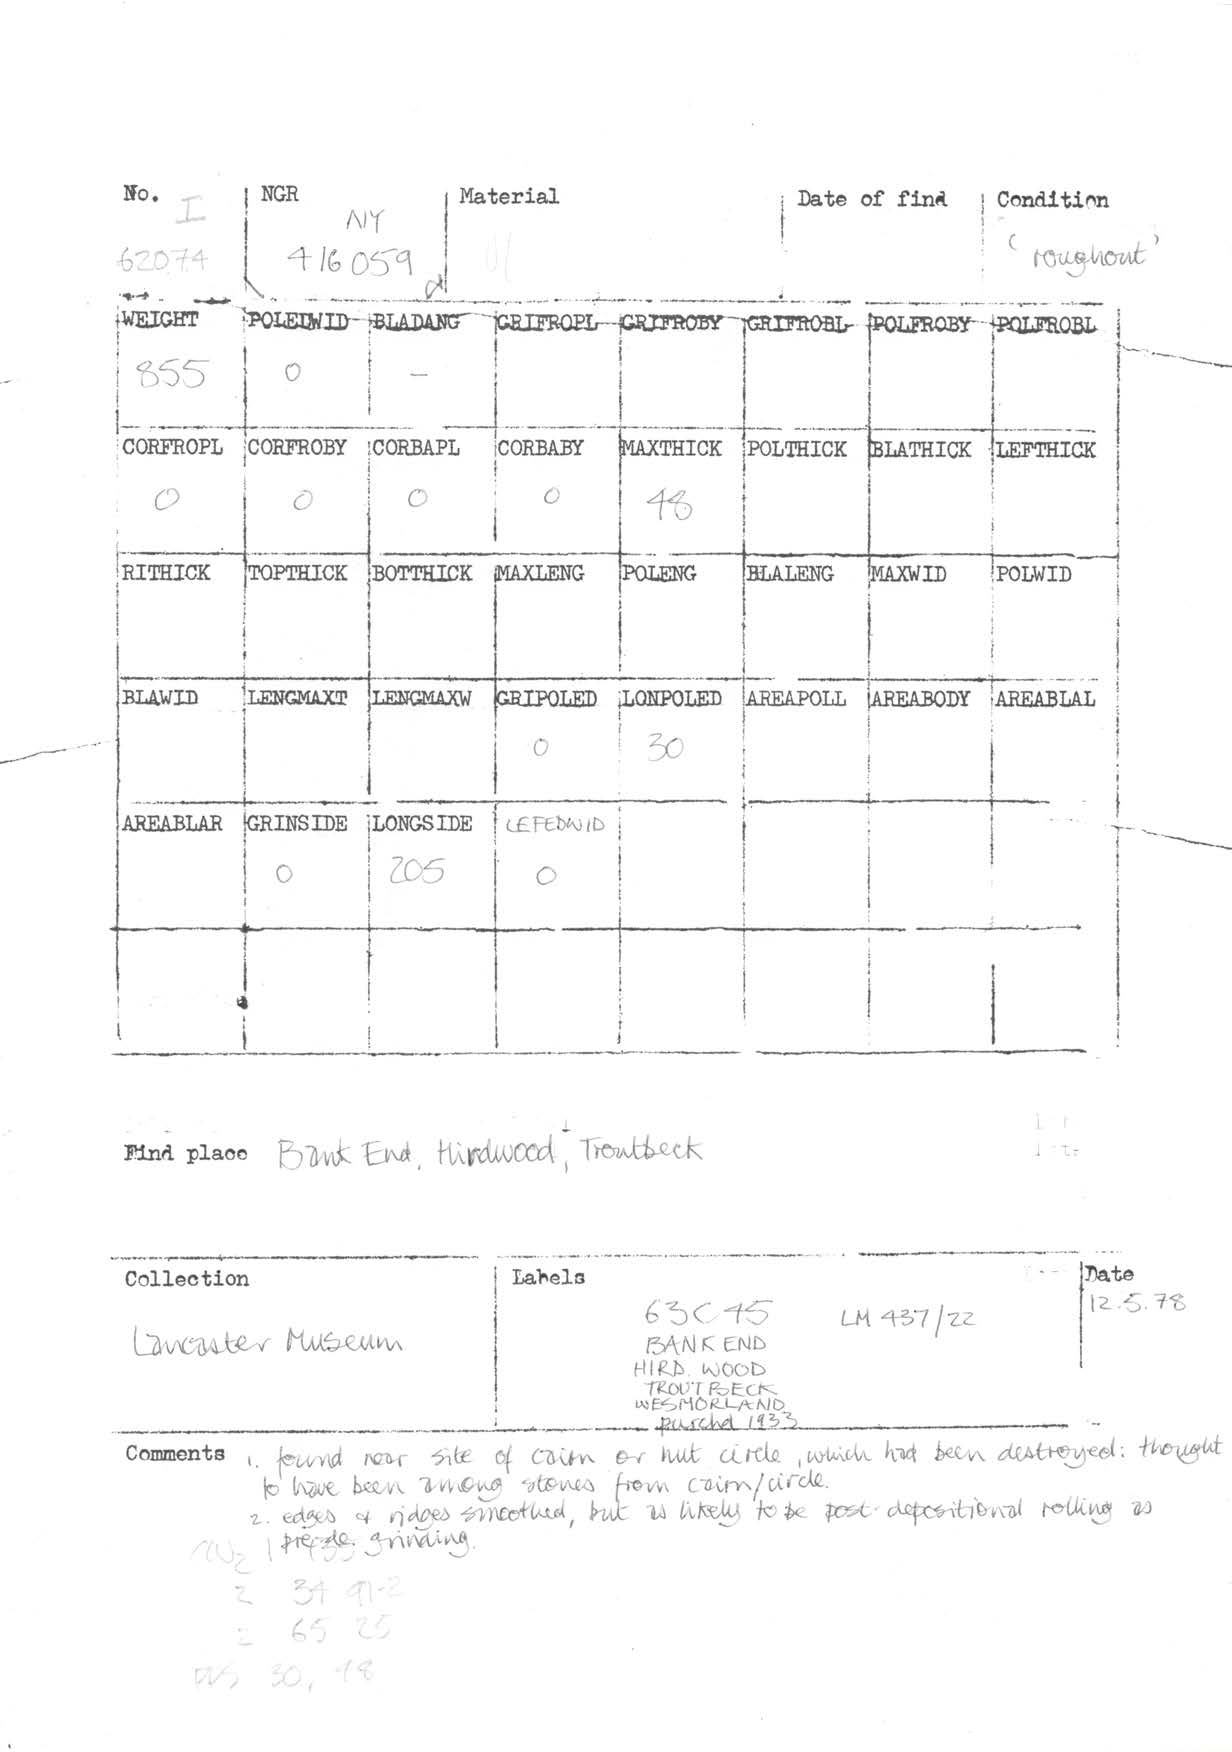 No. NGR Material Date of find Condition
I NY
62074 416 059 'roughout'
WEIGHT POLEDWID BLADANG GRIFROPL GRIFROBY GRIFROBL POLFROBY POLFROBL
855 0 –
CORFROPL CORFROBY CORBAPL CORBABY MAXTHICK POLTHICK BLATHICK LEFTHICK
0 0 0 0 48
RITHICK TOPTHICK BOTTHICK MAXLENG POLENG BLALENG MAXWID POLWID
BLAWID LENGMAXT LENGMAXW GRIPOLED LONPOLED AREAPOLL AREABODY AREABLAL
0 30
AREABLAR GRINSIDE LONGSIDE LEFEDWID
0 205 0
Find place Bank End, Hirdwood, Troutbeck
Collection Labels Date
63C45 LM 437/22 12.5.78
Lancaster Museum BANK END
HIRD. WOOD
TROUTBECK
WESMORLAND
purchd 1933
Comments 1. found near site of cairn or hut circle, which had been destroyed: thought
to have been among stones from cairn/circle.
2. edges & ridges smoothed, but as likely to be post-depositional rolling as
grinding.
2 34 91-2
2 65 25
30, 48